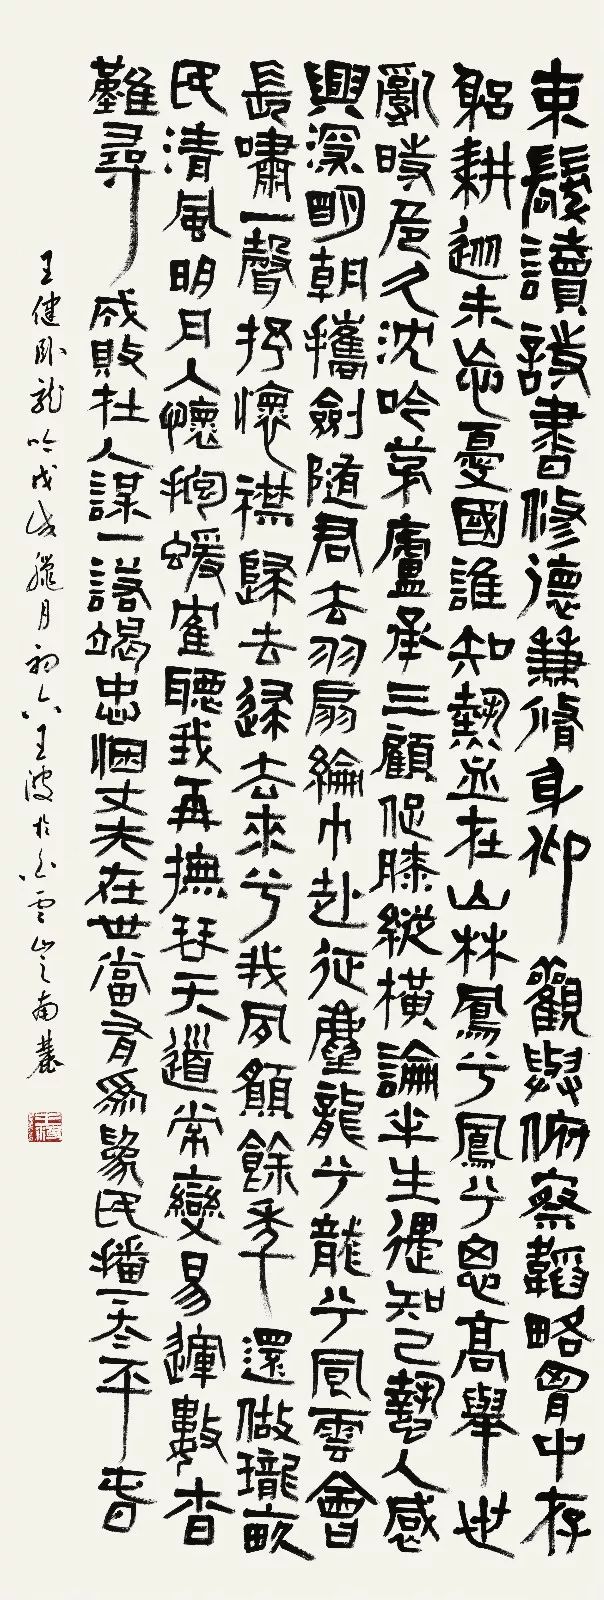 束髮讀詩書修德兼脩身仰觀與俯察韜略胷中存
躳耕從未忘憂國誰知熱血在山林鳳兮鳳兮思高舉世
亂時危久沈吟茅廬承三顧促膝縱橫論半生遇知己蟄人感
興深明朝攜劍隨君去羽扇綸巾赴征塵龍兮龍兮風雲會
長嘯一聲抒懷襟歸去歸去來兮我夙願餘年還做壠畝
民清風明月入懷抱蝯寉聽我再撫琴天道常變易運數杳
難尋成敗在人謀一諾竭忠悃丈夫在世當有爲爲民播下太平春
王健卧龍吟戊戌臘月初六王波於白雲山之南麓